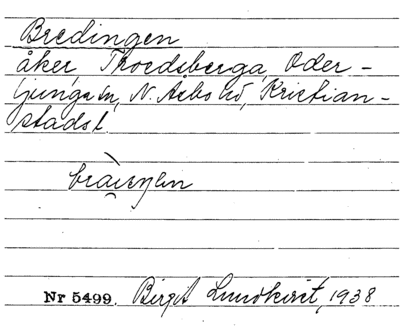 Bredingen
åker, Troedsberga, Oder-
ljunga sn, N. Åsbo hd, Kristian-
stads l.
Nr 5499. Birgit Lundkvist, 1938